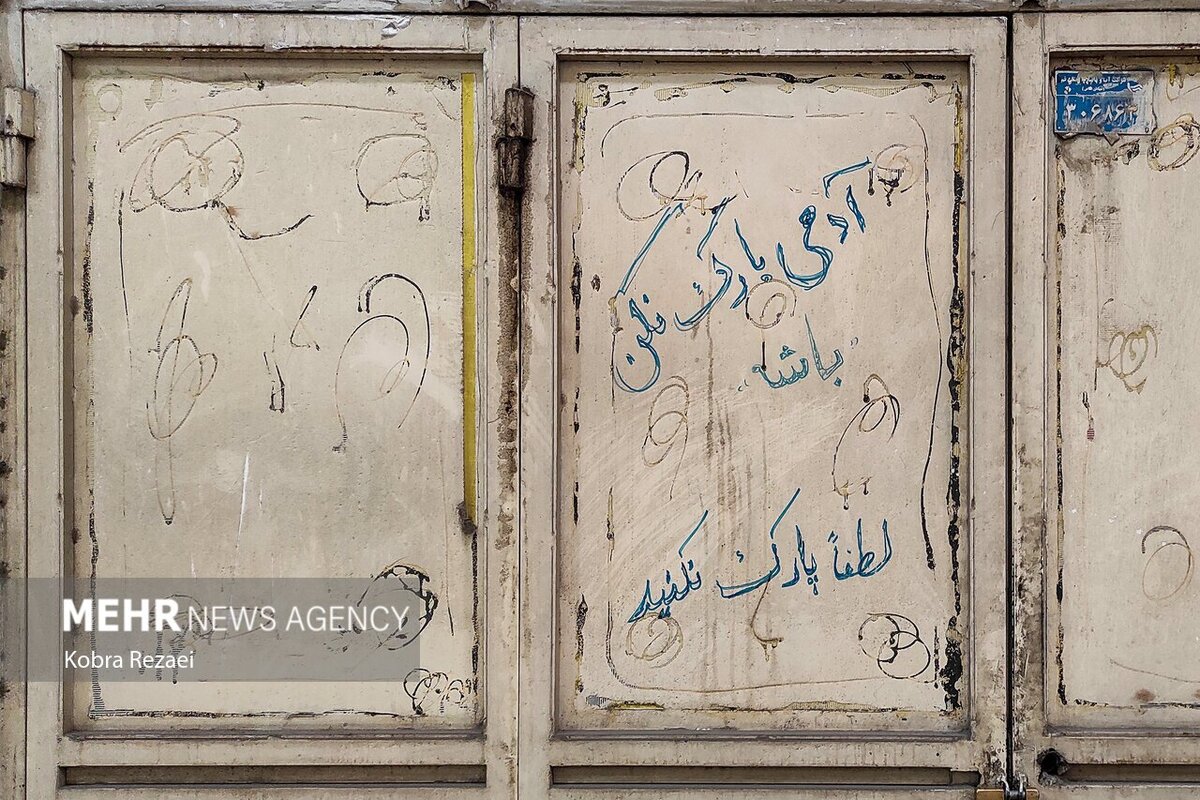 آدمی پارک نکن
باشه
لطفاً پارک نکنید
۳۰۶۸۶۴
MEHR NEWS AGENCY
Kobra Rezaei